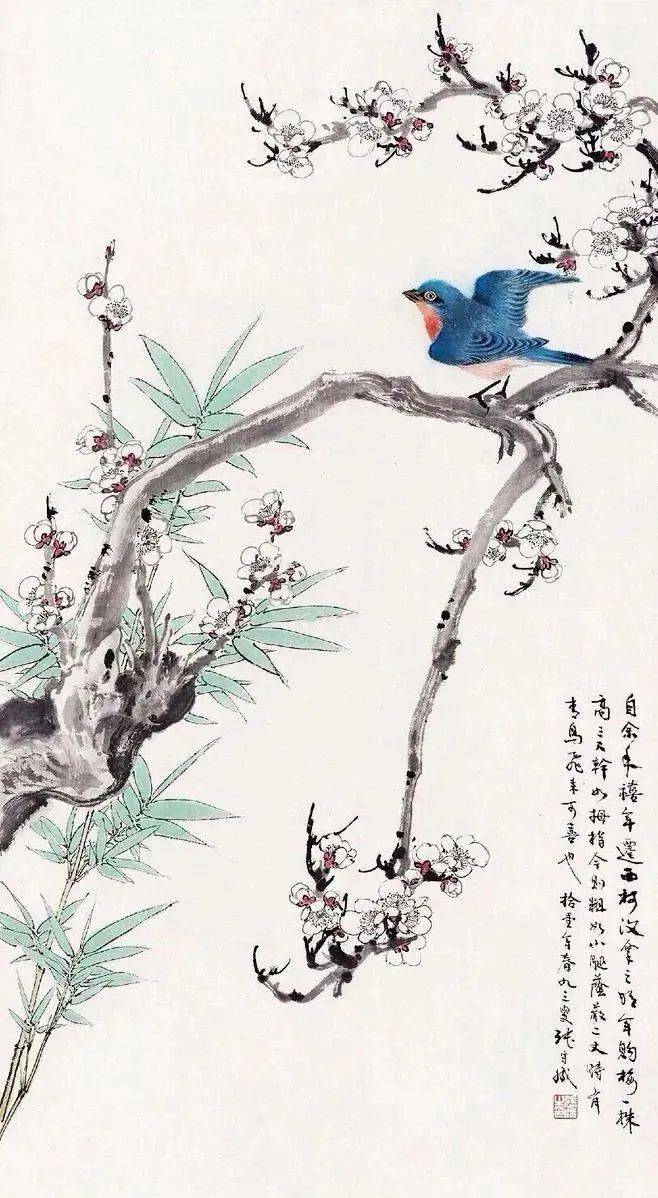 自余千禧年遷西柯汶拿之明年購梅一株
高三尺幹如拇指今則粗如小腿蔭蔽二丈時有
青鳥飛來可喜也 拾壹年春九三叟張守成